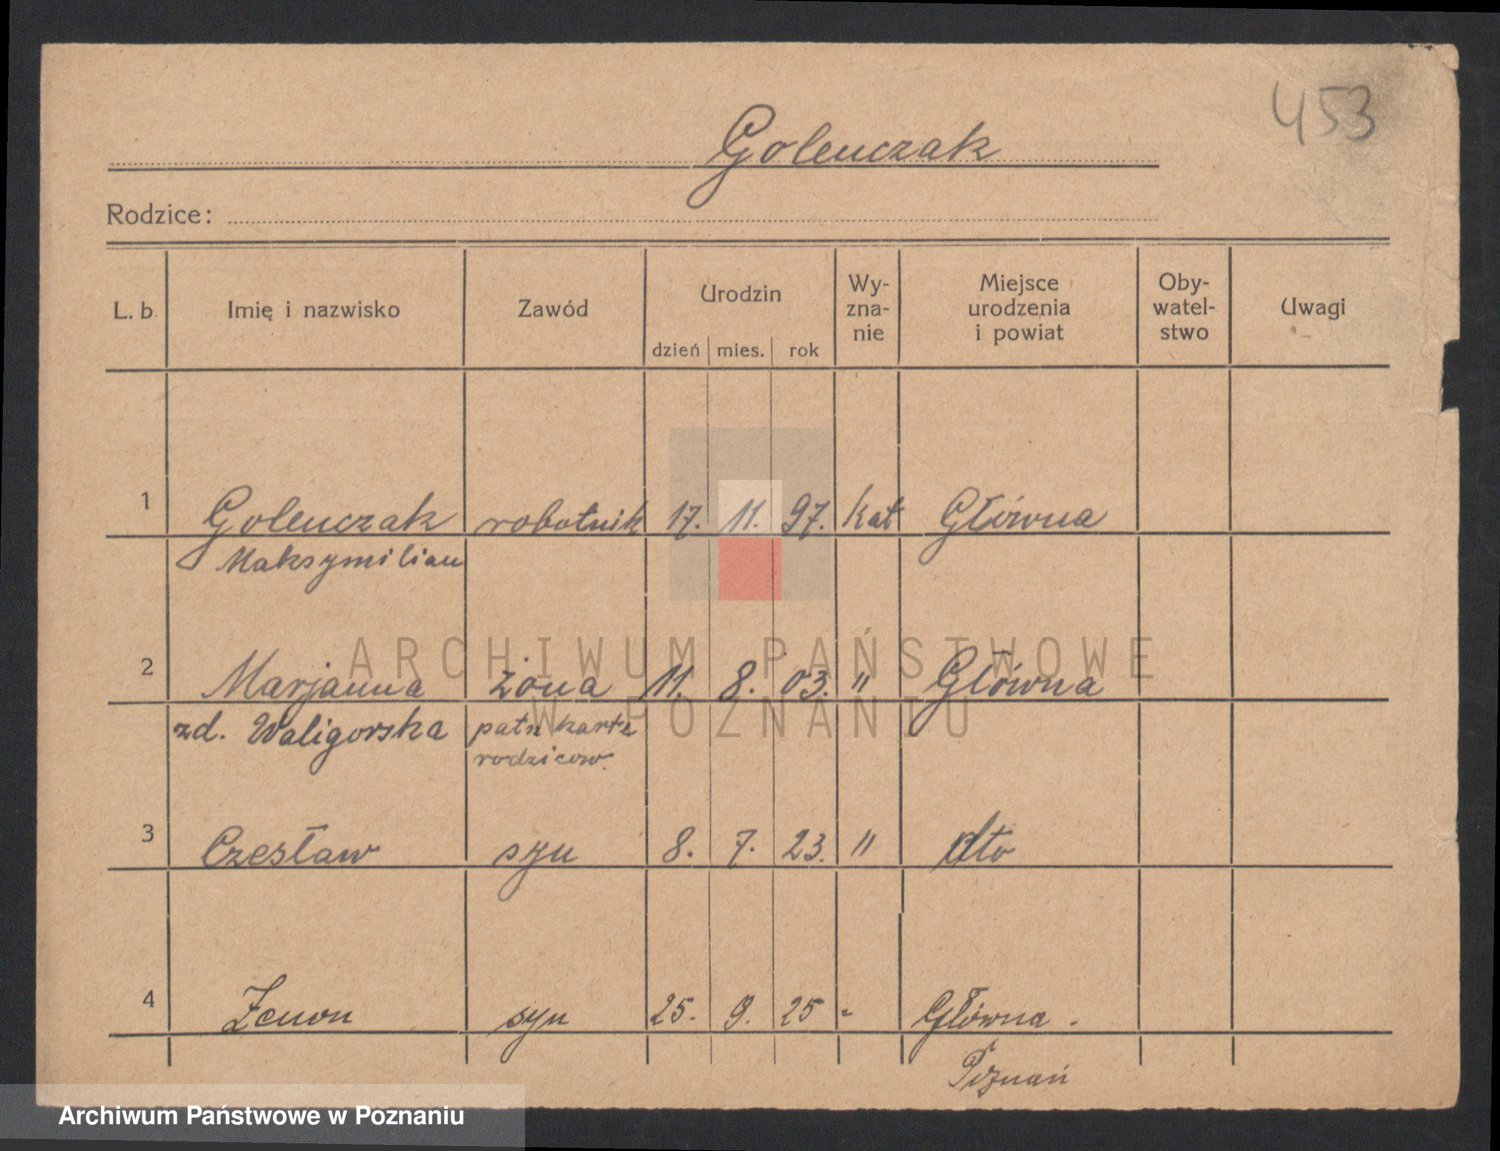 453
Golenczak
Rodzice:
L. b. Imię i nazwisko Zawód Urodzin dzień mies. rok Wy-zna-nie Miejsce urodzenia i powiat Oby-watel-stwo Uwagi
1 Golenczak robotnik 17. 11. 97. kat Główna
Maksymilian
ARCHIWUM PAŃSTWOWE
2 Marjanna żona 11. 8. 03. " Główna
W POZNANIU
zd. Waligorska patrz kartę
rodzicow.
3 Czesław syn 8. 7. 23. " dto
4 Zenon syn 25. 9. 25 - Główna.
Poznań
Archiwum Państwowe w Poznaniu